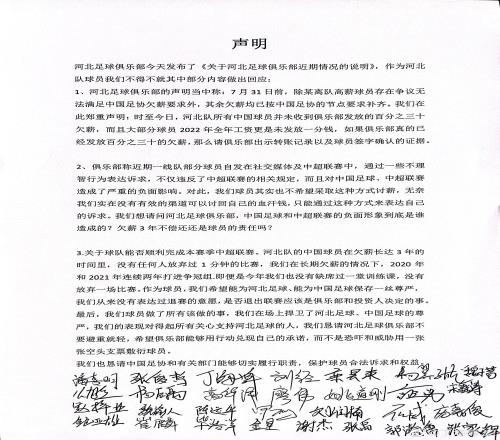 声明
河北足球俱乐部今天发布了《关于河北足球俱乐部近期情况的说明》，作为河北
队球员我们不得不就其中部分内容做出回应：
1、河北足球俱乐部的声明当中称：7 月 31 日前，除某离队高薪球员存在争议无
法满足中国足协欠薪要求外，其余欠薪均已按中国足协的节点要求补齐。我们在
此郑重声明：时至今日，河北队所有中国球员并未收到俱乐部发放的百分之三十
欠薪，而且大部分球员 2022 年全年工资更是未发放一分钱，如果俱乐部真的已
经发放百分之三十的欠薪，那么请俱乐部出示转账记录以及球员签字确认的证据。
2、俱乐部称近期一线队部分球员自发在社交媒体及中超联赛中，通过一些不理
智行为表达诉求，不仅违反了中超联赛的相关规定，而且对中国足球、中超联赛
造成了严重的负面影响。对此，我们球员其实也不希望采取这种方式计薪，无奈
我们实在没有有效的渠道可以讨回自己的血汗钱，只能通过这种方式来表达自己
的诉求。我们想请问河北足球俱乐部，中国足球和中超联赛的负面形象到底是谁
造成的？欠薪 3 年不偿还还是球员的责任吗？
3.关于球队能否顺利完成本赛季中超联赛。河北队的中国球员在欠薪长达 3 年的
时间里，没有任何人放弃过 1 分钟的比赛，我们在长期欠薪的情况下，2020 年
和 2021 年连续两年打进争冠组，即便是今年我们也没有缺席过一堂训练课，没有
放弃一场比赛。作为球员，我们希望能为河北足球、能为中国足球保存一丝尊严，
我们从来没有表达过退赛的意愿，是否退出联赛应该是俱乐部和投资人决定的事。
最后，我们球员做了所有该做的事，我们在场上捍卫了河北足球、中国足球的尊
严，我们的表现对得起所有关心支持河北足球的人，我们恳请河北足球俱乐部不
要避重就轻，希望俱乐部能够用行动兑现自己的承诺，而不是恐吓和威胁用一张
张空头支票敷衍球员。
我们也恳请中国足协和有关部门能够切实履行职责，保护球员合法诉求和权益